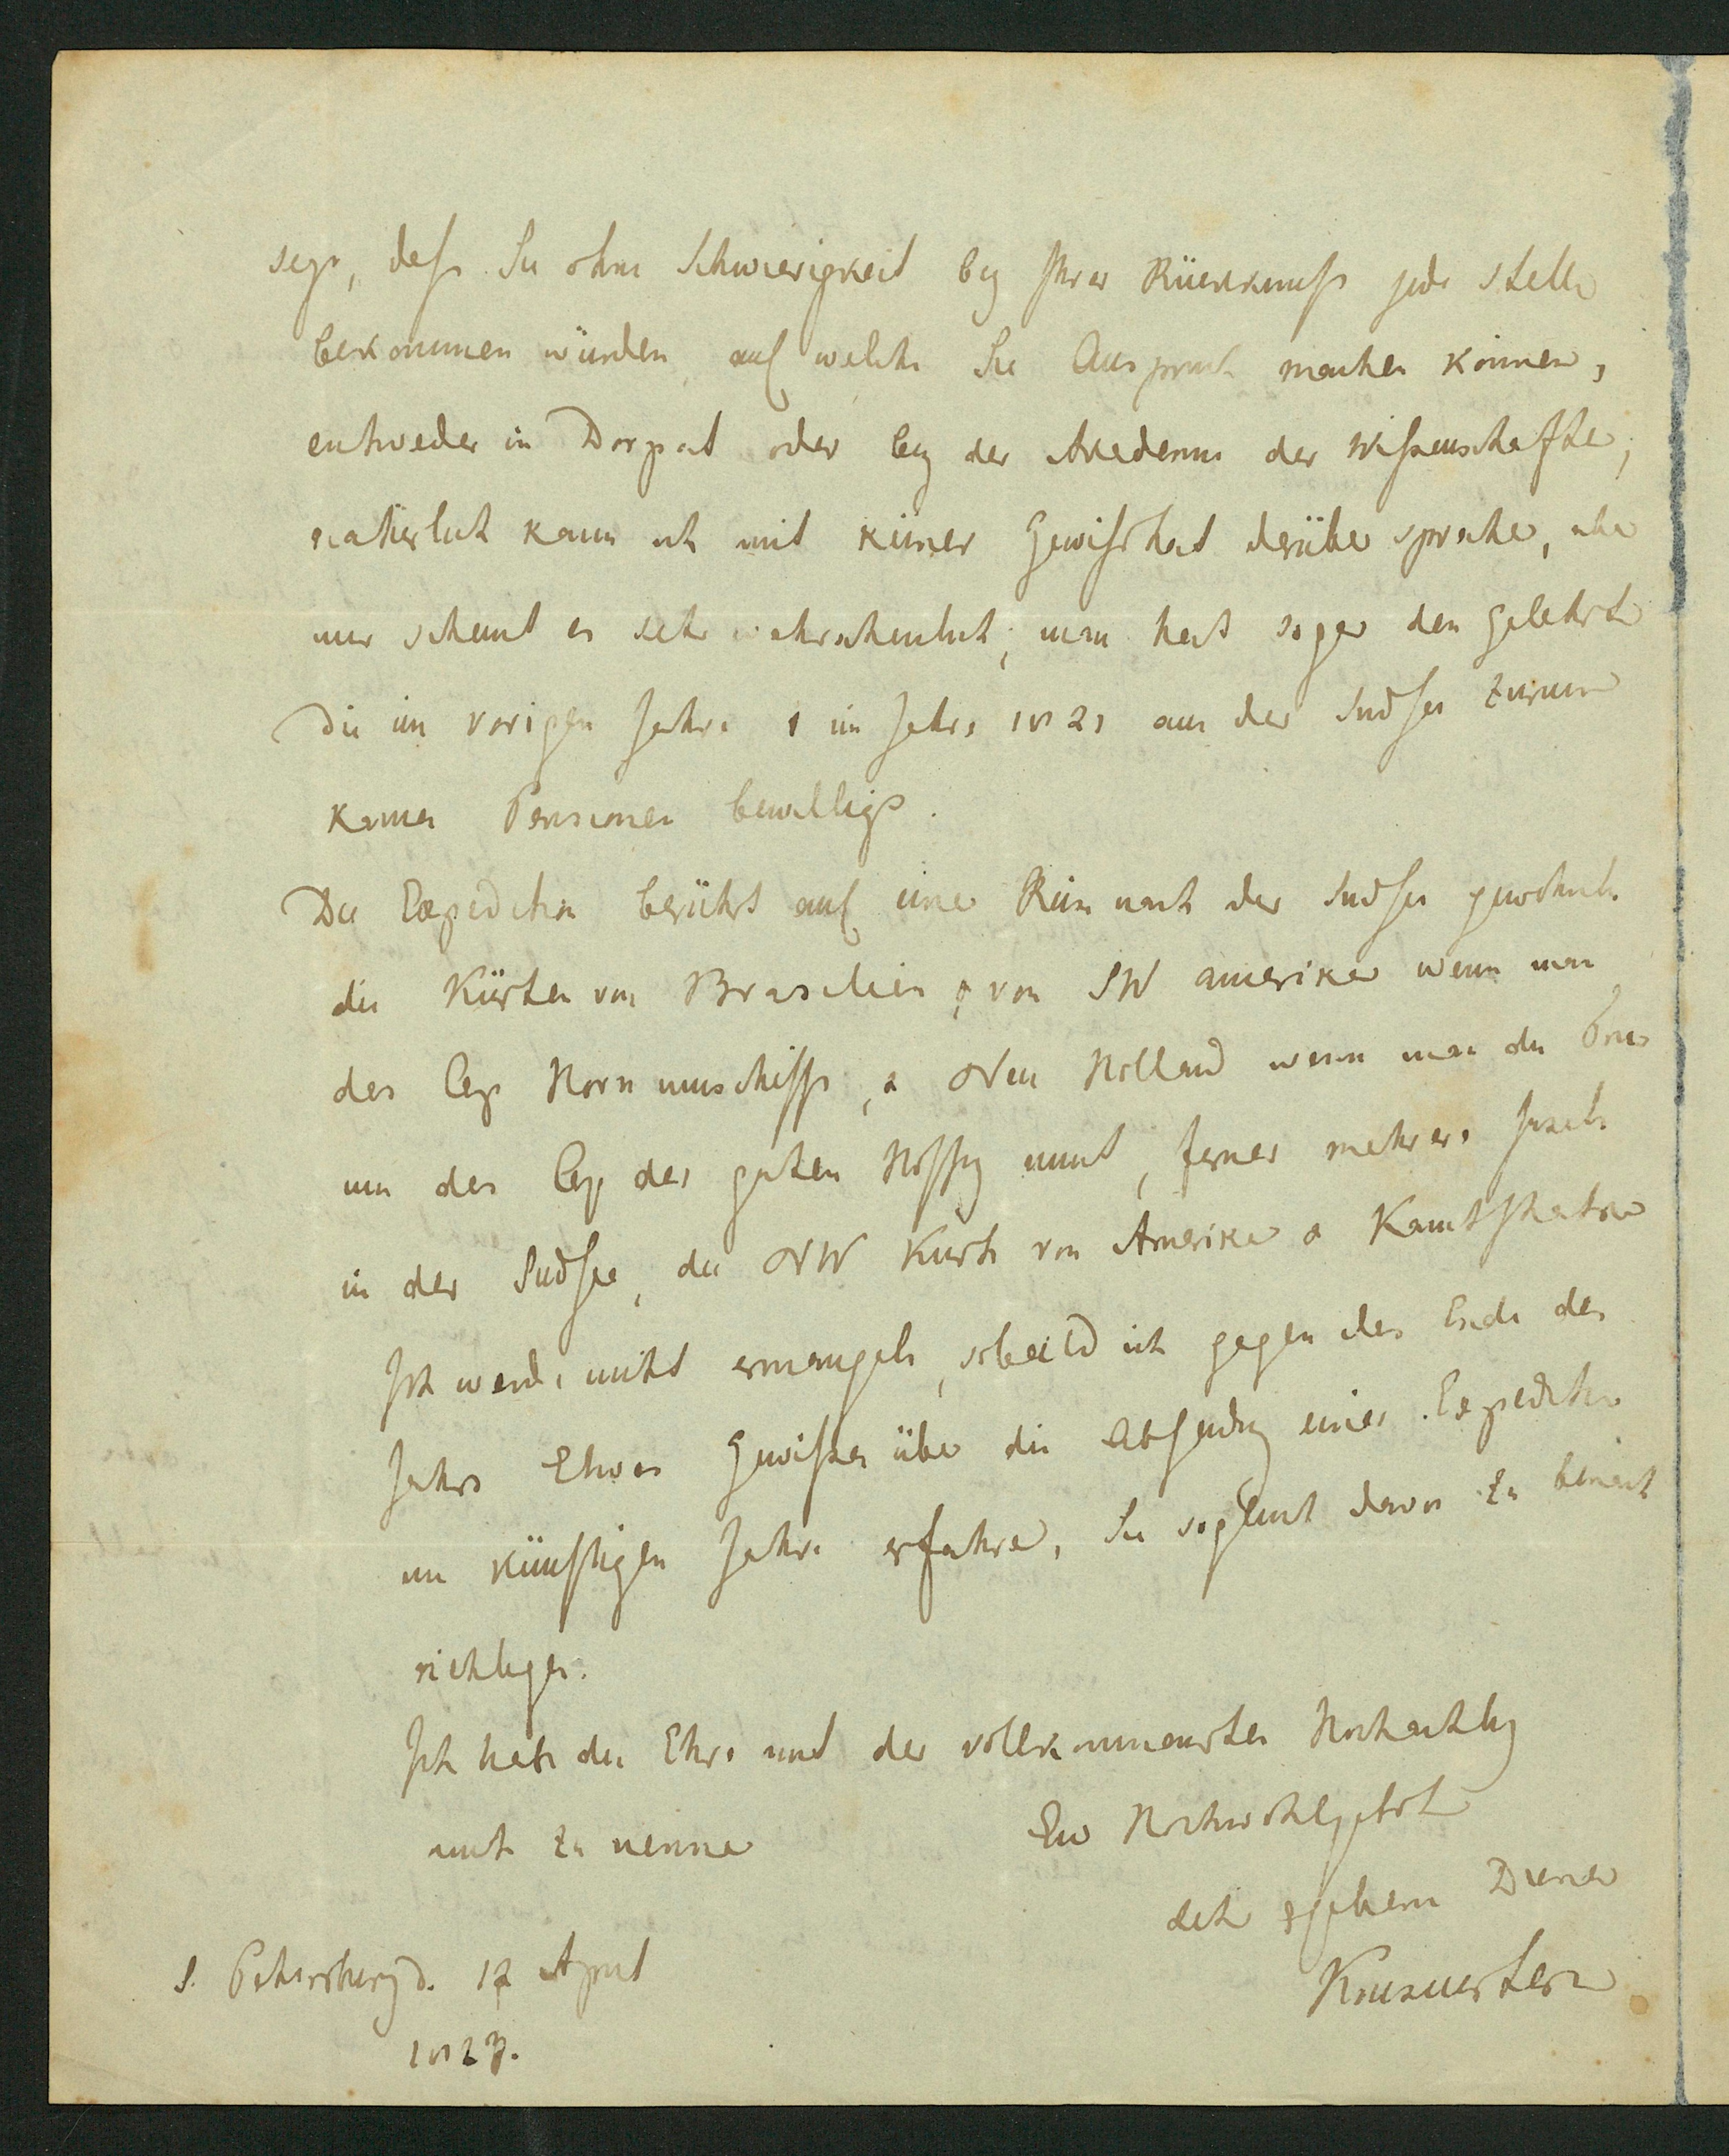 sagen, dass Sie ohne Schwierigkeit bey Ihrer Rückkunft jede Stelle
bekommen würden, auf welche Sie Anspruch machen können,
entweder in Dorpat oder bey der Akademie der Wissenschaften,
natürlich kann ich mit keiner Gewissheit darüber sprechen, aber
mir scheint es sehr wahrscheinlich; man hat sogar den Gelehrten
die im vorigen Jahre & im Jahre 1821 aus der Südsee zurück
kamen Pensionen bewilligt.
Die Expedition berührt auf einer Reise nach der Südsee gewöhnlich
die Küsten von Brasilien & von SW Amerika wenn man
das Cap Horn umschifft, & Neu Holland wenn man die
um das Cap der guten Hoffng nimt, ferner mehrere Inseln
in der Südsee, die NW Küste von Amerika & Kamtschatka
Ich werde nicht ermangeln, sobald ich gegen das Ende des
Jahrs Etwas Gewisses über die Absendng einer Expedition
im künftigen Jahre erfahre, Sie sogleich davon zu benach
richtigen.
Ich habe die Ehre mit der vollkommensten Hochachtg
mich zu nennen
Ew Hochwohlgeb
Diener
Krusenstern
S. Petersburg d. 17 April
1827.